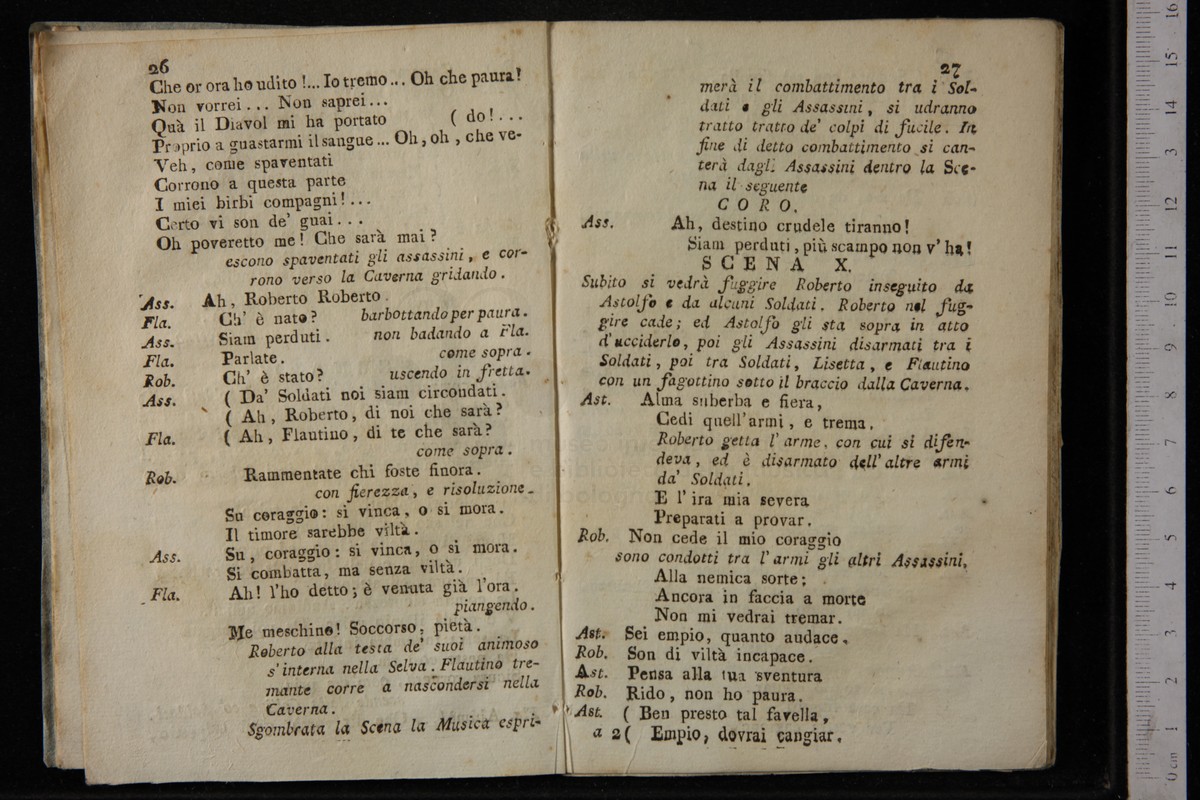 26
Che or ora ho udito !... Io tremo ... Oh che paura!
Non vorrei ... Non saprei ...
Quà il Diavol mi ha portato ( do! ...
Proprio a guastarmi il sangue ... Oh, oh, che ve-
Veh, come spaventati
Corrono a questa parte
I miei birbi compagni! ...
Certo vi son de' guai ...
Oh poveretto me! Che sarà mai?
escono spaventati gli assassini, e cor-
rono verso la Caverna gridando.
Ass. Ah, Roberto Roberto.
Fla. Ch' è nato? barbottando per paura.
Ass. Siam perduti. non badando a Fla.
Fla. Parlate. come sopra.
Rob. Ch' è stato? uscendo in fretta.
Ass. ( Da' Soldati noi siam circondati.
( Ah, Roberto, di noi che sarà?
Fla. ( Ah, Flautino, di te che sarà?
come sopra.
Rob. Rammentate chi foste finora.
con fierezza, e risoluzione.
Su coraggio: si vinca, o si mora.
Il timore sarebbe viltà.
Ass. Su, coraggio: si vinca, o si mora.
Si combatta, ma senza viltà.
Fla. Ah! l'ho detto; è venuta già l'ora.
piangendo.
Me meschino! Soccorso, pietà.
Roberto alla testa de' suoi animoso
s'interna nella Selva. Flautino tre-
mante corre a nascondersi nella
Caverna.
Sgombrata la Scena la Musica espri-
27
merà il combattimento tra i Sol-
dati e gli Assassini, si udranno
tratto tratto de' colpi di fucile. In
fine di detto combattimento si can-
terà dagli Assassini dentro la Sce-
na il seguente
CORO.
Ass. Ah, destino crudele tiranno!
Siam perduti, più scampo non v' ha!
SCENA X.
Subito si vedrà fuggire Roberto inseguito da
Astolfo e da alcuni Soldati. Roberto nel fug-
gire cade; ed Astolfo gli sta sopra in atto
d'ucciderlo, poi gli Assassini disarmati tra i
Soldati, poi tra Soldati, Lisetta, e Flautino
con un fagottino sotto il braccio dalla Caverna.
Ast. Alma suberba e fiera,
Cedi quell'armi, e trema.
Roberto getta l'arme, con cui si difen-
deva, ed è disarmato dell'altre armi
da' Soldati.
E l'ira mia severa
Preparati a provar.
Rob. Non cede il mio coraggio
sono condotti tra l'armi gli altri Assassini.
Alla nemica sorte;
Ancora in faccia a morte
Non mi vedrai tremar.
Ast. Sei empio, quanto audace.
Rob. Son di viltà incapace.
Ast. Pensa alla tua sventura
Rob. Rido, non ho paura.
Ast. ( Ben presto tal favella,
a 2 ( Empio, dovrai cangiar.
0 cm 1 2 3 4 5 6 7 8 9 10 11 12 3 14 15 16